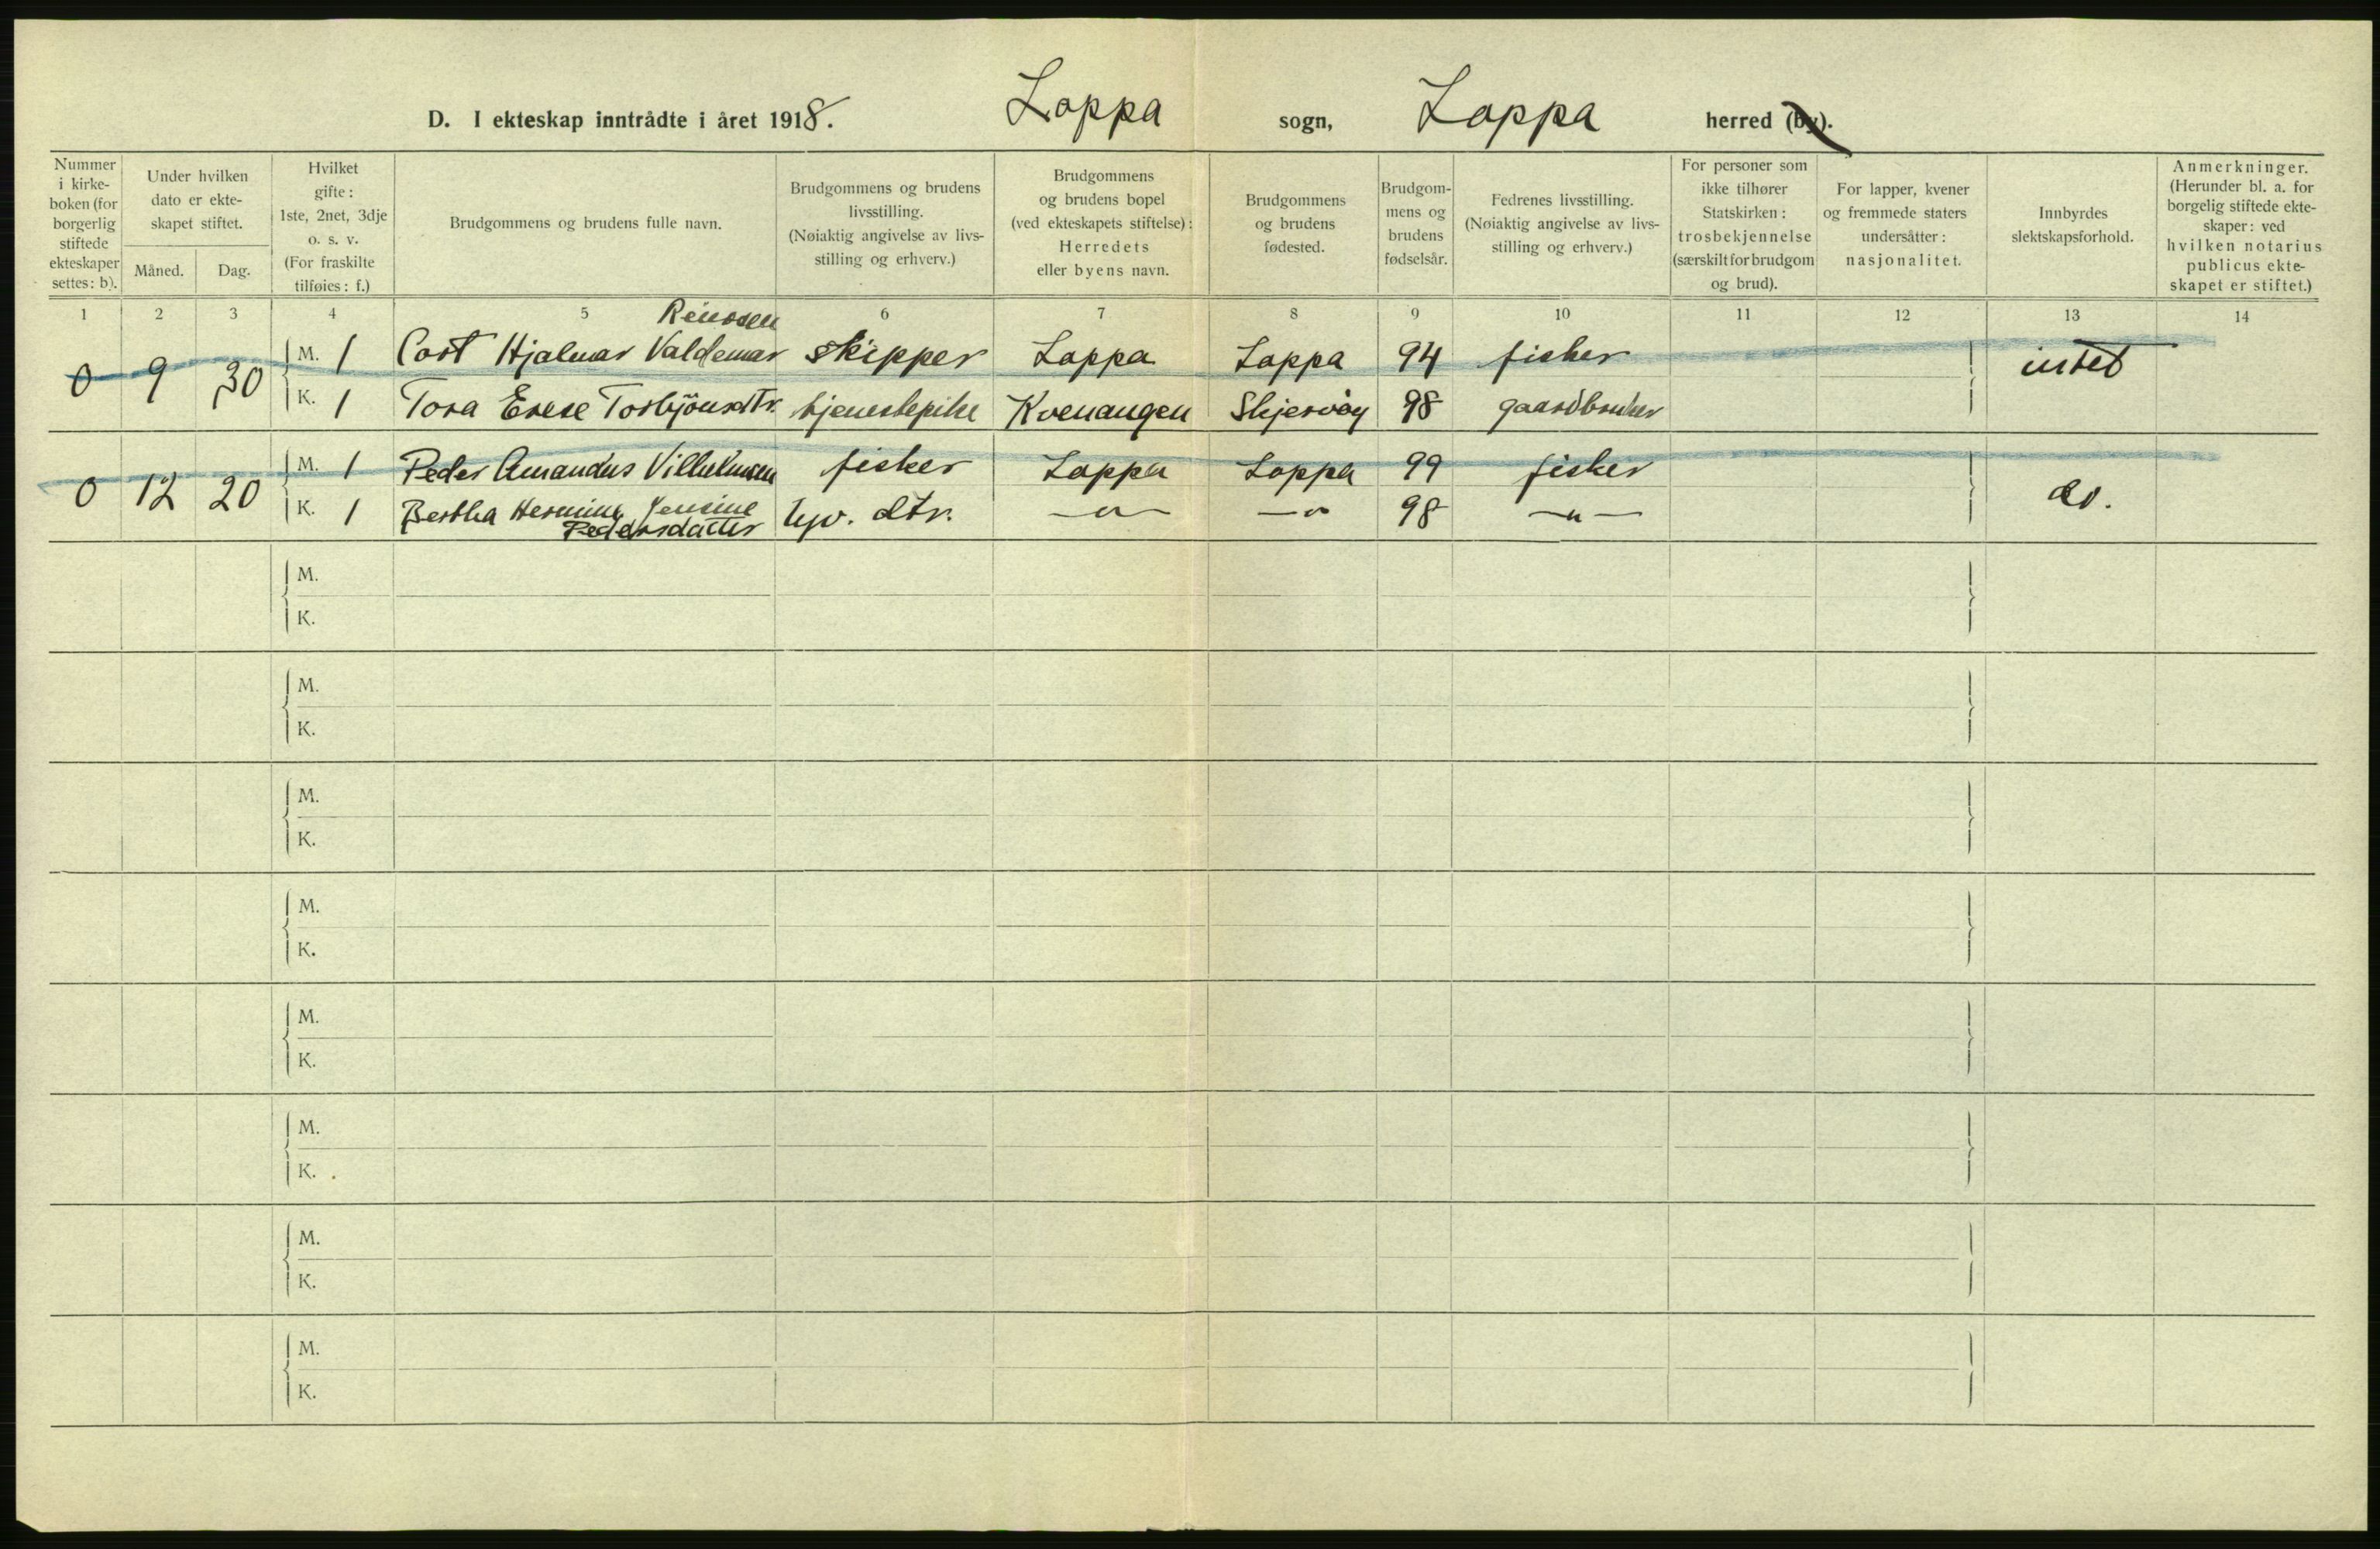 D. I ekteskap inntrådte i året 1918. Loppa sogn, Loppa herred (by).
Nummer i kirke-boken (for borgerlig stiftede ekteskaper settes: b).
Under hvilken dato er ekte-skapet stiftet.
Måned. Dag.
Hvilket gifte: 1ste, 2net, 3dje o. s. v. (For fraskilte tilføies: f.)
Brudgommens og brudens fulle navn.
Brudgommens og brudens livsstilling. (Nøiaktig angivelse av livs-stilling og erhverv.)
Brudgommens og brudens bopel (ved ekteskapets stiftelse): Herredets eller byens navn.
Brudgommens og brudens fødested.
Brudgom-mens og brudens fødselsår.
Fedrenes livsstilling. (Nøiaktig angivelse av livs-stilling og erhverv.)
For personer som ikke tilhører Statskirken: trosbekjennelse (særskilt for brudgom og brud).
For lapper, kvener og fremmede staters undersåtter: nasjonalitet.
Innbyrdes slektskapsforhold.
Anmerkninger. (Herunder bl. a. for borgelig stiftede ekte-skaper: ved hvilken notarius publicus ekte-skapet er stiftet.)
1 2 3 4 5 6 7 8 9 10 11 12 13 14
0 9 30 M. 1 Hjalmar Valdemar skipper Loppa Loppa 94 fisker intet
K. 1 Tora tjenestepike Kvenangen Skjervøy 98 gaardbruker
0 12 20 M. 1 Peder Amandus Vilhelmsen fisker Loppa Loppa 99 fisker do.
K. 1 Bertha Hermine Jensine hjv. dtr. —"— —" 98 —"—
Pedersdatter
M.
K.
M.
K.
M.
K.
M.
K.
M.
K.
M.
K.
M.
K.
M.
K.